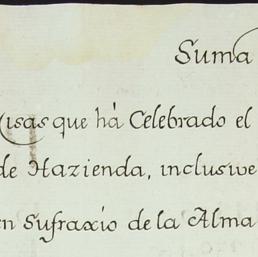 Suma
Misas que há Celebrado el
de Hazienda, inclusive
en Sufraxio de la Alma